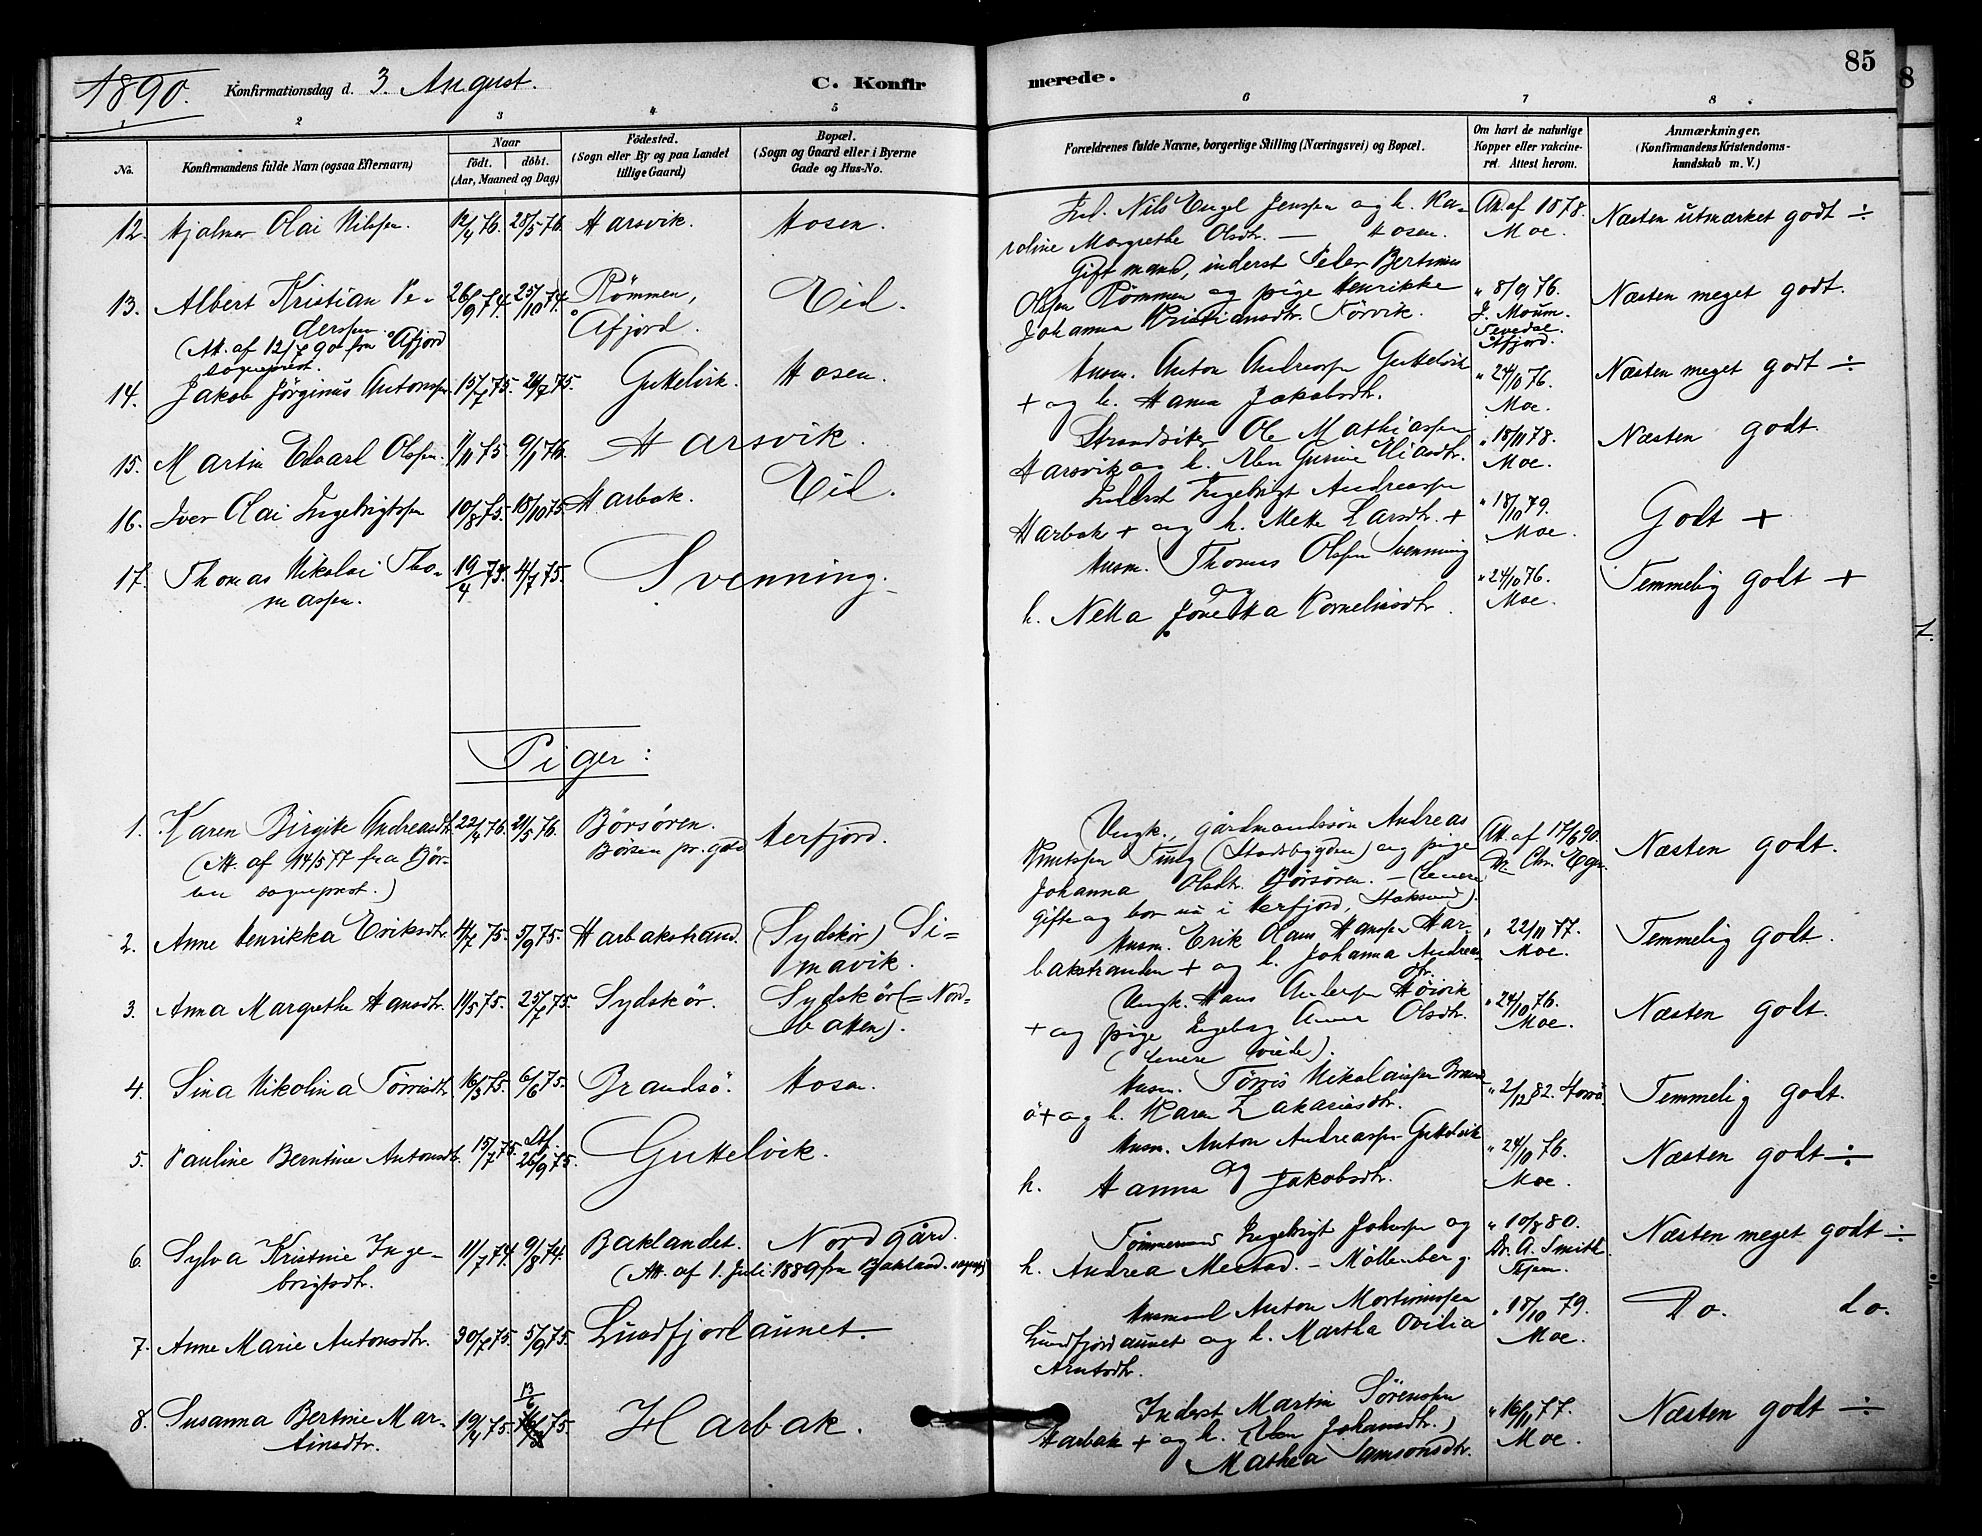 1890. Konfirmationsdag d. 3. August. C. Konfirmerede. 85
1 2 3 4 5 6 7 8
No. Konfirmandens fulde Navn (ogsaa Efternavn) Naar født. døbt. (Aar, Maaned og Dag) Fødested. (Sogn eller By og paa Landet tillige Gaard) Bopæl. (Sogn og Gaard eller i Byerne Gade og Hus-No. Forældrenes fulde Navne, borgerlige Stilling (Næringsvei) og Bopæl. Om havt de naturlige Kopper eller vakcineret. Attest herom. Anmærkninger. (Konfirmandens Kristendomskundskab m. V.)
12. Hjalmar Olai Nilssen. 12/4 76. 28/5 76. Harsvik. Hosen. Ind. Nils Engel Jenssen og h. Ka-
roline Margrethe Olsdtr. — Hosen. Att. af 1878. Moe. Næsten utmærket godt ÷
13. Albert Kristian Pe-
derssen.
(Att. af 12/7 90 fra Åfjord
sogneprest. 26/9 74. 25/10 74. Rømmen,
Åfjord. Eid. Gift mand, inderst Peder Bertinus
Olsen Rømmen og pige Henrikke
Johanna Kristiansdtr. Tørvik. " 8/9 76.
J. Moum.
Åfjord. Næsten meget godt.
14. Jakob Jørginus Antonssen 15/7 75. 21/7 75. Guttelvik. Hosen. Husm. Anton Andreassen Guttelvik
+ og h. Hanna Jakobsdtr. " 24/10 76.
Moe. Næsten meget godt ÷
15. Martin Edvard Olssen. 1/11 75 9/1 76. Harsvik. Strandsitter Ole Mathiassen
Harsvik og h. Elen Gurine Eliasdtr. " 18/11 78.
Moe. Næsten godt.
16. Iver Olai Ingebrigtssen 10/8 75. 18/10 75. Harbak. Eid. Inderst Ingebrigt Andreassen
Harbak + og h. Mette Larsdtr. + " 18/10 79.
Moe. Godt +
17. Thomas Nikolai Tho-
massen. 19/4 75. 4/7 75. Svenning. Husm. Thomas Olssen Svenning
og
h. Netta Jonetta Korneliusdtr. " 24/10 76.
Moe. Temmelig godt +
Piger:
1. Karen Birgitte Andreasdtr.
(Att. af 14/5 77 fra Bør-
sen sogneprest.) 22/4 76. 21/5 76. Børsøren.
Børsen pr.gjeld Herfjord. Ungk., gårdmandssøn Andreas
Knutssen Tung (Stadsbygden) og pige
Johanna Olsdtr. Børsøren. — (Senere
gifte og bor nu i Herfjord, Stoksund). Att. af 17/6 90.
Dr. Chr. Egn. Næsten godt.
2. Anne Henrikka Eriksdtr. 4/7 75. 5/9 75. Harbakstrand. (Sydskør) Si-
mavik. Husm. Erik Olaus Hanssen Har-
bakstranden + og h. Johanna Andreas-
dtr. " 22/11 77.
Moe. Temmelig godt.
3. Anna Margrethe Hansdtr. 11/5 75. 25/7 75. Sydskør. Sydskør (= Nord-
batten). Ungk. Hans Anderssen Høivik
+ og pige Ingeborg Anna Olsdtr.
(senere viede). " 24/10 76.
Moe. Næsten godt.
4. Sina Nikolina Tørrisdtr. 16/3 75. 6/6 75. Brandsø. Hosen. Husm. Tørris Nikolaissen Brands-
ø + og h. Karen Zakariasdtr. " 2/12 82. Temmelig godt.
5. Pauline Berntine Antonsdtr. 15/7 75. Stf.
26/9 75. Guttelvik. Husm. Anton Andreassen Guttelvik
og
h. Hanna Jakobsdtr. " 24/10 76.
Moe. Næsten godt ÷
6. Sylva Kristine Inge-
brigtsdtr. 11/7 74. 9/8 74. Baklandet. Nordgård.
(Att. af 1. Juli 1889 fra Bakland. sognepr. Tømmermand Ingebrigt Johnssen og
h. Andrea Mestad. — Møllenberg. " 10/8 80.
Dr. A. Smith.
Thjem. Næsten meget godt ÷
7. Anne Marie Antonsdtr. 30/7 75. 5/9 75. Lundfjordaunet. Husmand Anton Mortinussen
Lundfjordaunet og h. Martha Ovidia
Arntsdtr. " 18/10 79.
Moe. Do. do.
8. Susanna Bertine Mar-
tinsdtr. 19/4 75. 13/6 75. Harbak. Inderst Martin Sørenssen
Harbak + og h. (Elen Johansdtr.)
Mathea Samsonsdtr. " 16/11 77.
Moe. Næsten godt ÷